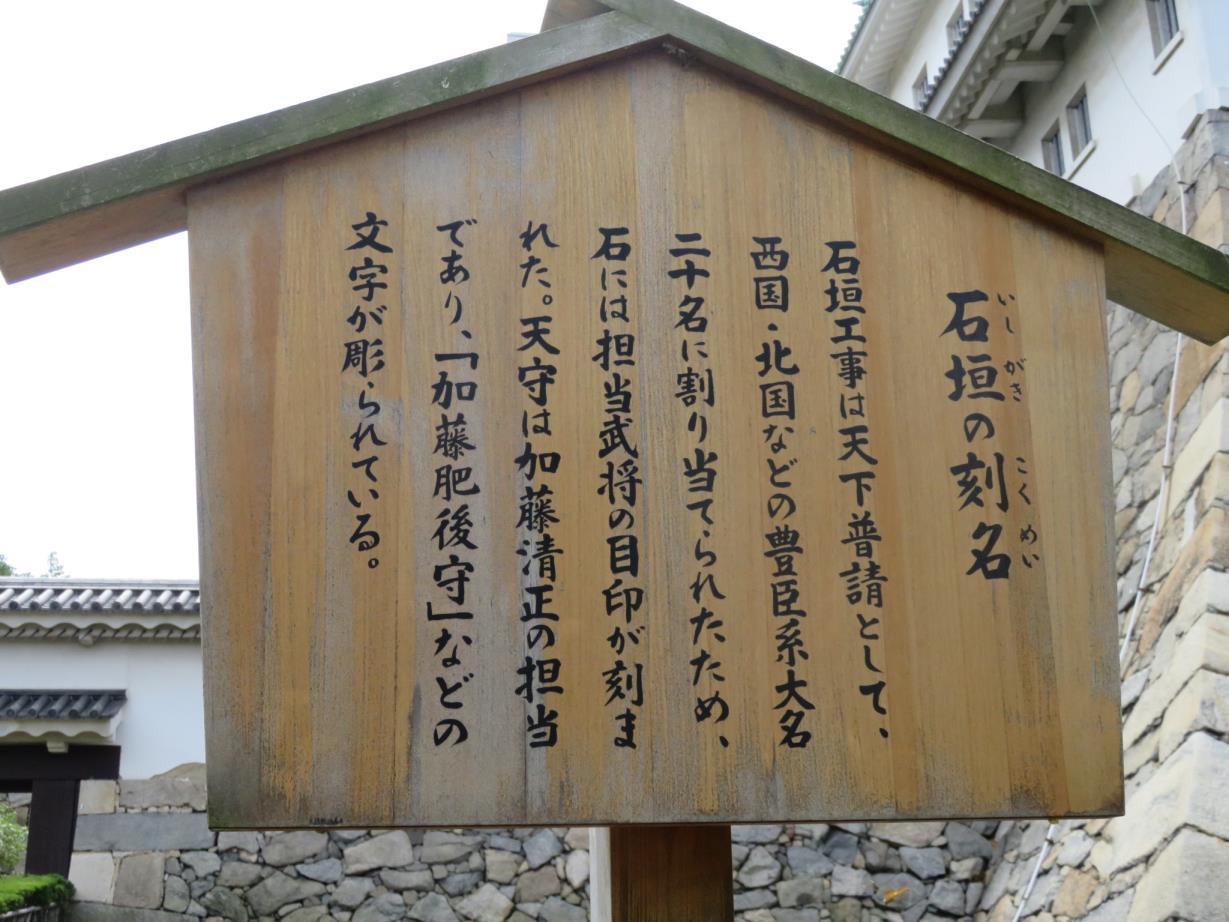 石垣の刻名
いしがき こくめい
石垣工事は天下普請として、
西国・北国などの豊臣系大名
二十名に割り当てられたため、
石には担当武将の目印が刻ま
れた。天守は加藤清正の担当
であり、「加藤肥後守」などの
文字が彫られている。